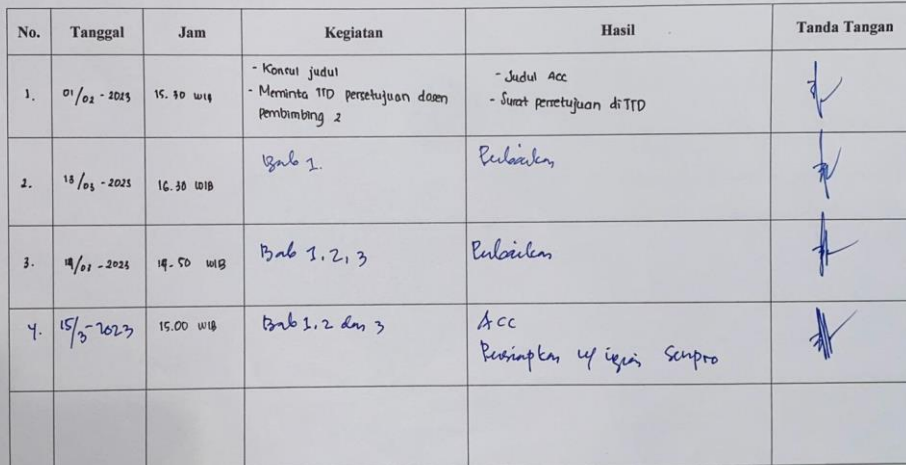 No. Tanggal Jam Kegiatan Hasil Tanda Tangan
1. 01/02 - 2023 15.30 WIB - Konsul judul - Judul Acc
- Meminta TTD persetujuan dosen - Surat persetujuan di TTD
pembimbing 2
2. 13/03 - 2023 16.30 WIB Bab 1. Perbaikan
3. 2023 14.50 WIB Bab 1, 2, 3 Perbaikan
4. 15/3-2023 15.00 WIB Bab 1, 2 dan 3 ACC
Persiapkan u/ Sempro